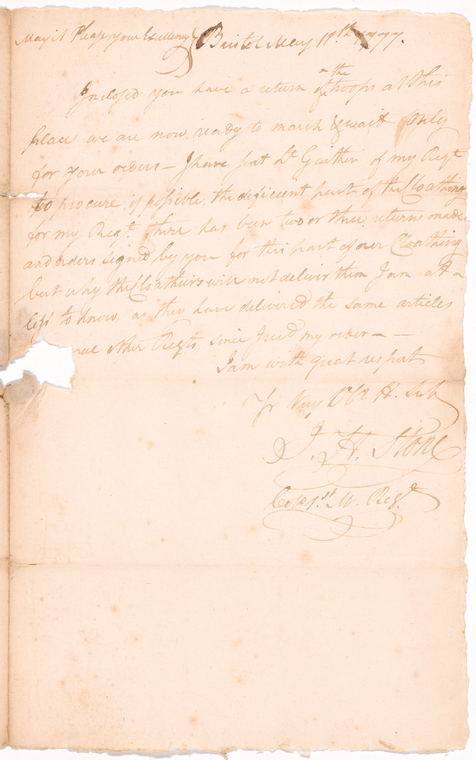 May it Please your Excellency Bristol May 11th 1777.
Inclosed you have a return of the troops at this
place we are now ready to march & wait only
for your orders – I have sent Lt Gaither of my Regt
to procure if possible, the deficient part of the Cloathing
for my Regt. there has been two or three returns made
and orders signed by you for this part of our Cloathing
but why the Cloathiers will not deliver them I am at a
loss to know as they have delivered the same articles
other Regts since I had my order –
I am with great respect
Yr Very Obt H. Sert
J. H. Stone
Colo 1st M. Regt